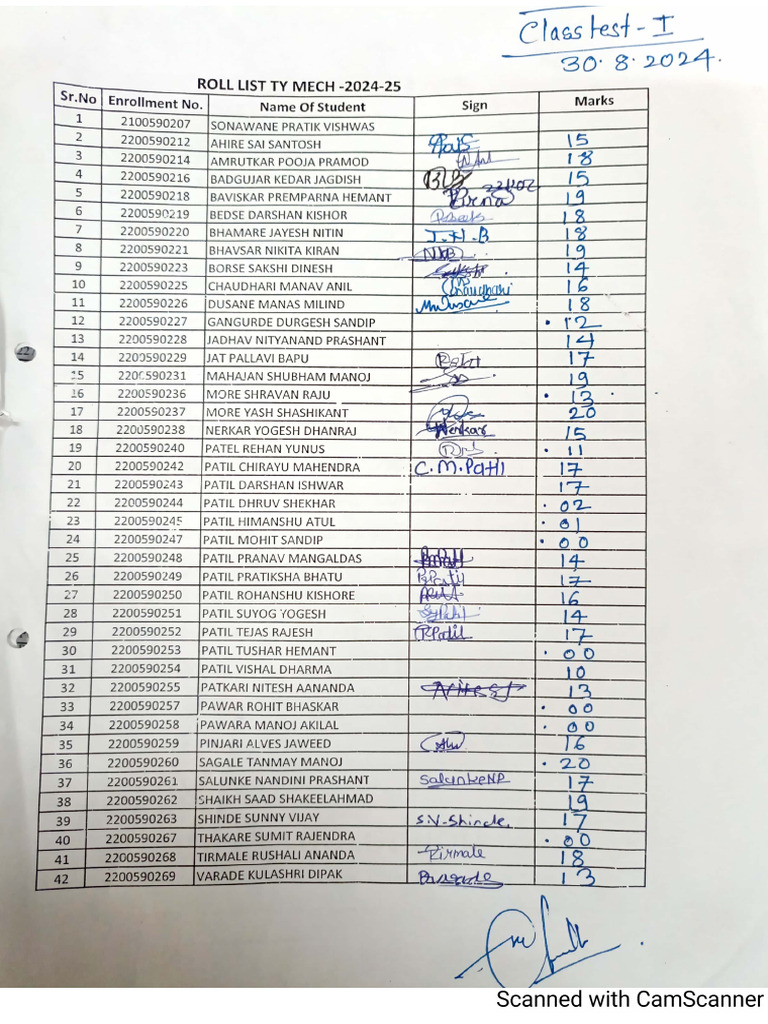 Class test - I
30.8.2024.
ROLL LIST TY MECH -2024-25
Sr.No Enrollment No. Name Of Student Sign Marks
1 2100590207 SONAWANE PRATIK VISHWAS
2 2200590212 AHIRE SAI SANTOSH 15
3 2200590214 AMRUTKAR POOJA PRAMOD 18
4 2200590216 BADGUJAR KEDAR JAGDISH 15
5 2200590218 BAVISKAR PREMPARNA HEMANT 19
6 2200590219 BEDSE DARSHAN KISHOR 18
7 2200590220 BHAMARE JAYESH NITIN J.N.B 18
8 2200590221 BHAVSAR NIKITA KIRAN NKB 19
9 2200590223 BORSE SAKSHI DINESH 14
10 2200590225 CHAUDHARI MANAV ANIL Chaudhari 16
11 2200590226 DUSANE MANAS MILIND 18
12 2200590227 GANGURDE DURGESH SANDIP . 12
13 2200590228 JADHAV NITYANAND PRASHANT 14
14 2200590229 JAT PALLAVI BAPU 17
15 2200590231 MAHAJAN SHUBHAM MANOJ 19
16 2200590236 MORE SHRAVAN RAJU . 13
17 2200590237 MORE YASH SHASHIKANT 20
18 2200590238 NERKAR YOGESH DHANRAJ Nerkar 15
19 2200590240 PATEL REHAN YUNUS . 11
20 2200590242 PATIL CHIRAYU MAHENDRA C.M.Patil 17
21 2200590243 PATIL DARSHAN ISHWAR 17
22 2200590244 PATIL DHRUV SHEKHAR . 02
23 2200590245 PATIL HIMANSHU ATUL . 01
24 2200590247 PATIL MOHIT SANDIP . 00
25 2200590248 PATIL PRANAV MANGALDAS 14
26 2200590249 PATIL PRATIKSHA BHATU 17
27 2200590250 PATIL ROHANSHU KISHORE 16
28 2200590251 PATIL SUYOG YOGESH 14
29 2200590252 PATIL TEJAS RAJESH 17
30 2200590253 PATIL TUSHAR HEMANT . 00
31 2200590254 PATIL VISHAL DHARMA 10
32 2200590255 PATKARI NITESH AANANDA 13
33 2200590257 PAWAR ROHIT BHASKAR . 00
34 2200590258 PAWARA MANOJ AKILAL . 00
35 2200590259 PINJARI ALVES JAWEED 16
36 2200590260 SAGALE TANMAY MANOJ . 20
37 2200590261 SALUNKE NANDINI PRASHANT SalunkeNP 17
38 2200590262 SHAIKH SAAD SHAKEELAHMAD 19
39 2200590263 SHINDE SUNNY VIJAY S.V.Shinde. 17
40 2200590267 THAKARE SUMIT RAJENDRA . 00
41 2200590268 TIRMALE RUSHALI ANANDA Tirmale 18
42 2200590269 VARADE KULASHRI DIPAK 13
Scanned with CamScanner